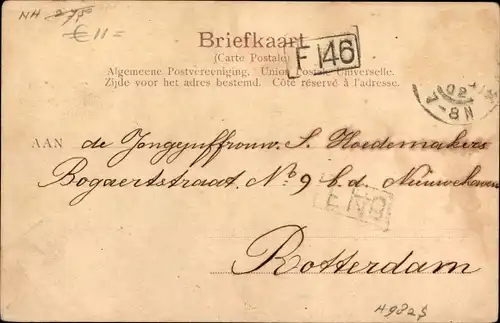 NH 275
€ 11=
Briefkaart
(Carte Postale)
F 146
Algemeene Postvereeniging. Union Postale Universelle.
Zijde voor het adres bestemd. Côté réservé à l'adresse.
02
7-8 N
AAN de Jongejuffrouw. S. Hoedemakers
Bogaertstraat, No 9 b.d. Nieuwehaven
Rotterdam
H982$